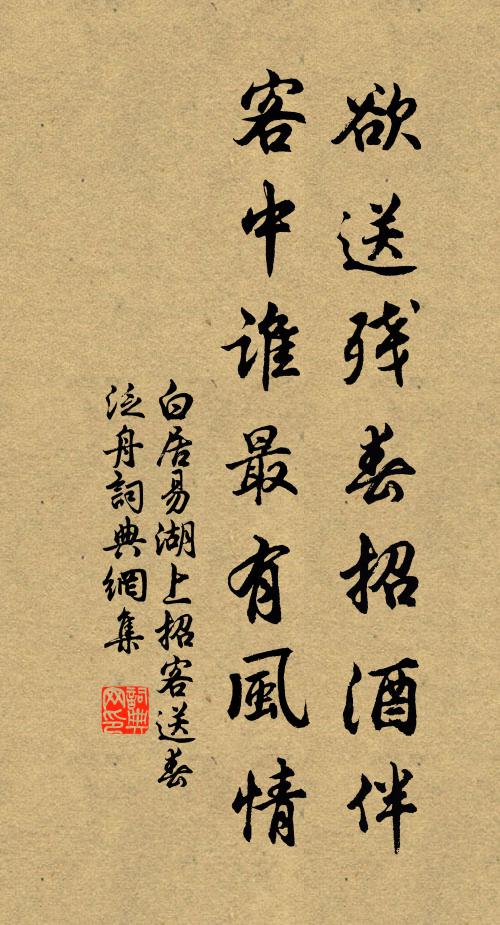 欲送残春招酒伴
客中谁最有風情
白居易湖上招客送春
泛舟詞典網集
詞典网印